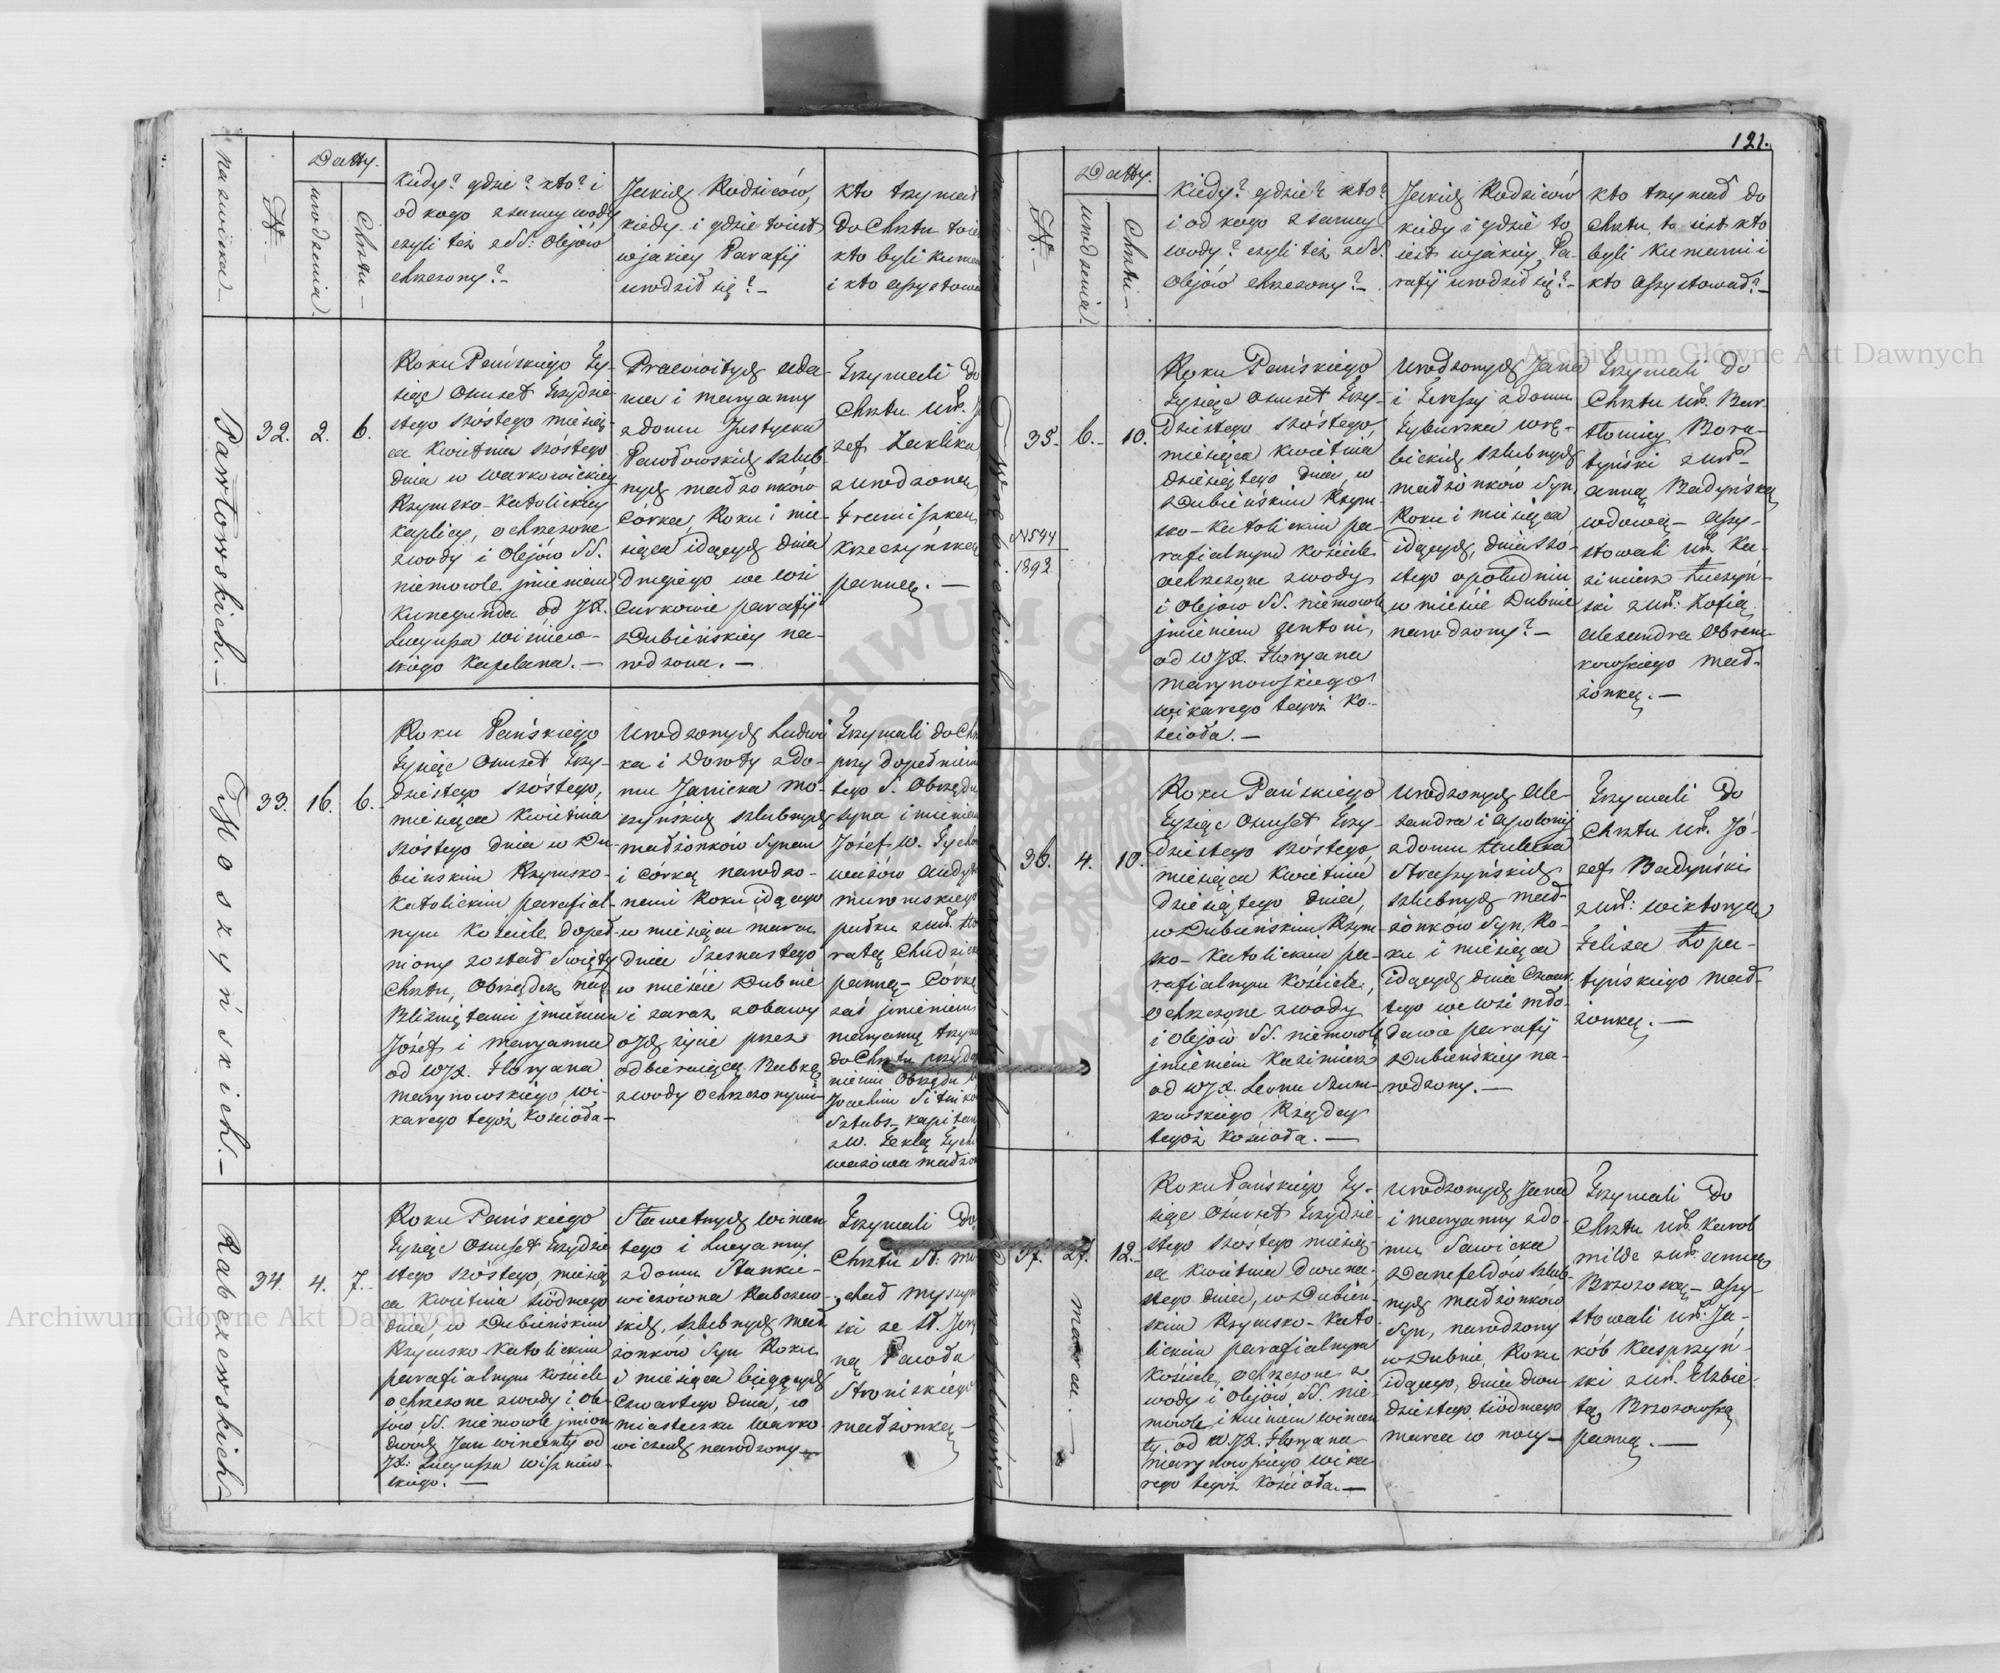 121.
nazwiska
N.
Datty.
urodzenia.
Chrztu
Kiedy? gdzie? kto? i
od kogo z samey wody
czyli też z SS: Olejów
chrzczony?
Jakich Rodziców,
kiedy i gdzie to iest
w jakiey Parafij
urodził się?
kto trzymał
do Chrztu
kto byli
i kto
Pawłowskich.
32.
2.
6.
Roku Pańskiego Ty-
siąc Osmset trzydzie-
stego szóstego miesią-
ca Kwietnia szóstego
dnia w Warkowickiey
Rzymsko-Katolickiey
kaplicy, ochrzczone
z wody i Olejów SS.
niemowle jmieniem
Kunegunda od JX.
Lucyusza Wiśniew-
skiego Kapelana.
Prawowitych Ada-
ma i Maryanny
z domu
Pawłowskich szlub-
nych małżonków
Córka, Roku i mie-
siąca idących dnia
drugiego we wsi
Curkowie parafij
Dubieńskiey na-
rodzona.
Trzymali do
Chrztu Ur.
zef Zaklika
z urodzoną
Franciszką
pannę.
Moszyńskich.
33.
16.
6.
Roku Pańskiego
Tysiąc Osmset trzy-
dziestego szóstego,
miesiąca Kwietnia
szóstego dnia w Du-
bińskim Rzymsko-
Katolickim parafial-
nym Kościele dopeł-
niony został Święty
Chrztu, Obrządek nad
Bliźniętami jmieniem
Józef i Maryanna
od WJX. Floryana
Marynowskiego wi-
karego tegoż Kościoła
Urodzonych Ludwi-
ka i Doroty z do-
mu Janicka Mo-
szyńskich szlubnych
małżonków Synem
i córką narodzo-
nemi Roku idącego
w miesiącu marcu
dnia Szesnastego
w mieście Dubnie
i zaraz z obawy
o ich życie przez
odbierającą Babkę
z wody ochrzczonymi
Trzymali do
przy dopełnieniu
tego S. Obrzędu
syna imieniem
Józef W.
pułku z Ur.
pannę Córkę
zaś jmieniem
Maryannę
do Chrztu przy
nieniu Obrzędu
Joachim
Sztabs-kapitan
z W. Teklą
Rabczewskich
34.
4.
7.
Roku Pańskiego
Tysiąc Osmset trzydzie-
stego szóstego, miesią-
ca Kwietnia siódmego
dnia, w Dubieńskim
Rzymsko Katolickim
parafialnym Kościele
ochrzczone z wody i Ole-
jów SS. niemowle jmion
dwoch Jan Wincenty od
JX: Lucyusza Wiszniew-
skiego.
Sławetnych Wincen-
tego i Lucyanny
z domu Stankie-
wiczowna Rabczew-
skich, szlubnych mał-
żonków Syn Roku
i miesiąca bieżących
Czwartego dnia, w
miasteczku Warko-
wiczach narodzony
Trzymali do
Chrztu St.
chał
ski ze St.
ną Pawła
Stroniskiego
małżonką
nazwiska
N.
Datty.
urodzenia.
Chrztu
Kiedy? gdzie? kto?
i od kogo z samey
wody? czyli też z SS.
Olejów chrzczony?
Jakich Rodziców
kiedy i gdzie to
iest w jakiey Pa-
rafij urodził się?
kto trzymał do
Chrztu, to iest kto
byli Kumami i
kto assystował?
35.
6.
10.
N 544
1892
Roku Pańskiego
Tysiąc Osmset trzy-
dziestego szóstego,
miesiąca Kwietnia
dziesiątego dnia, w
Dubieńskim Rzym-
sko-Katolickim pa-
rafialnym Kościele
ochrzczone z wody
i Olejów SS. niemowle
jmieniem Antoni,
od WJX. Floryana
Marynowskiego
wikarego tegoż Ko-
ścioła.
Urodzonych Jana
i Teressy z domu
Tyburska Wrę-
bickich szlubnych
małżonków Syn,
Roku i miesiąca
idących, dnia szó-
stego o południu
w mieście Dubnie
narodzony?
Trzymali do
Chrztu Ur. Bar-
tłomiey Bora-
tyński z Ur.
Anną Badyńską
wdową assy-
stowali Ur. Ka-
zimierz
ski z Ur: Zofią
Alexandra Obrem-
kowskiego mał-
żonką.
36.
4.
10.
Roku Pańskiego
Tysiąc Osmset trzy-
dziestego szóstego
miesiąca Kwietnia
dziesiątego dnia,
w Dubieńskim Rzym-
sko-Katolickim pa-
rafialnym Kościele,
ochrzczone z wody
i Olejów SS. niemowle
jmieniem Kazimierz
od WJX. Leona Szum-
kowskiego Rządcy
tegoż Kościoła.
Urodzonych Ale-
xandra i Apolonij
z domu Hulecka
Straszyńskich
szlubnych mał-
żonków Syn, Ro-
ku i miesiąca
idących dnia Czwar-
tego we wsi Mło-
dawie parafij
Dubieńskiey na-
rodzony.
Trzymali do
Chrztu Ur. Jó-
zef Badyński
z Ur: Wiktoryą
Felixa Łopa-
tyńskiego mał-
żonką.
37.
27.
marca.
12.
Roku Pańskiego Ty-
siąc Osmset trzydzie-
stego szóstego miesią-
ca Kwietnia dwuna-
stego dnia, w Dubień-
skim Rzymsko-Kato-
lickim parafialnym
Kościele, ochrzczone z
wody i Olejów SS. nie-
mowle imieniem Wincen-
ty, od WJX. Floryana
Marynowskiego wika-
rego tegoż Kościoła.
Urodzonych Jana
i Maryanny z do-
mu Sawicka
Danefeldów szlub-
nych małżonków
Syn, narodzony
w Dubnie, Roku
idącego, dnia dwu-
dziestego siódmego
marca w nocy
Trzymali do
Chrztu Ur. Karol
Milde z Ur: Anną
Brzozoską assy-
stowali Ur: Ja-
kób Kasprzyń-
ski z Ur. Elżbie-
tą Brzozowską
panną.
Archiwum Główne Akt Dawnych
Archiwum Główne Akt Dawnych